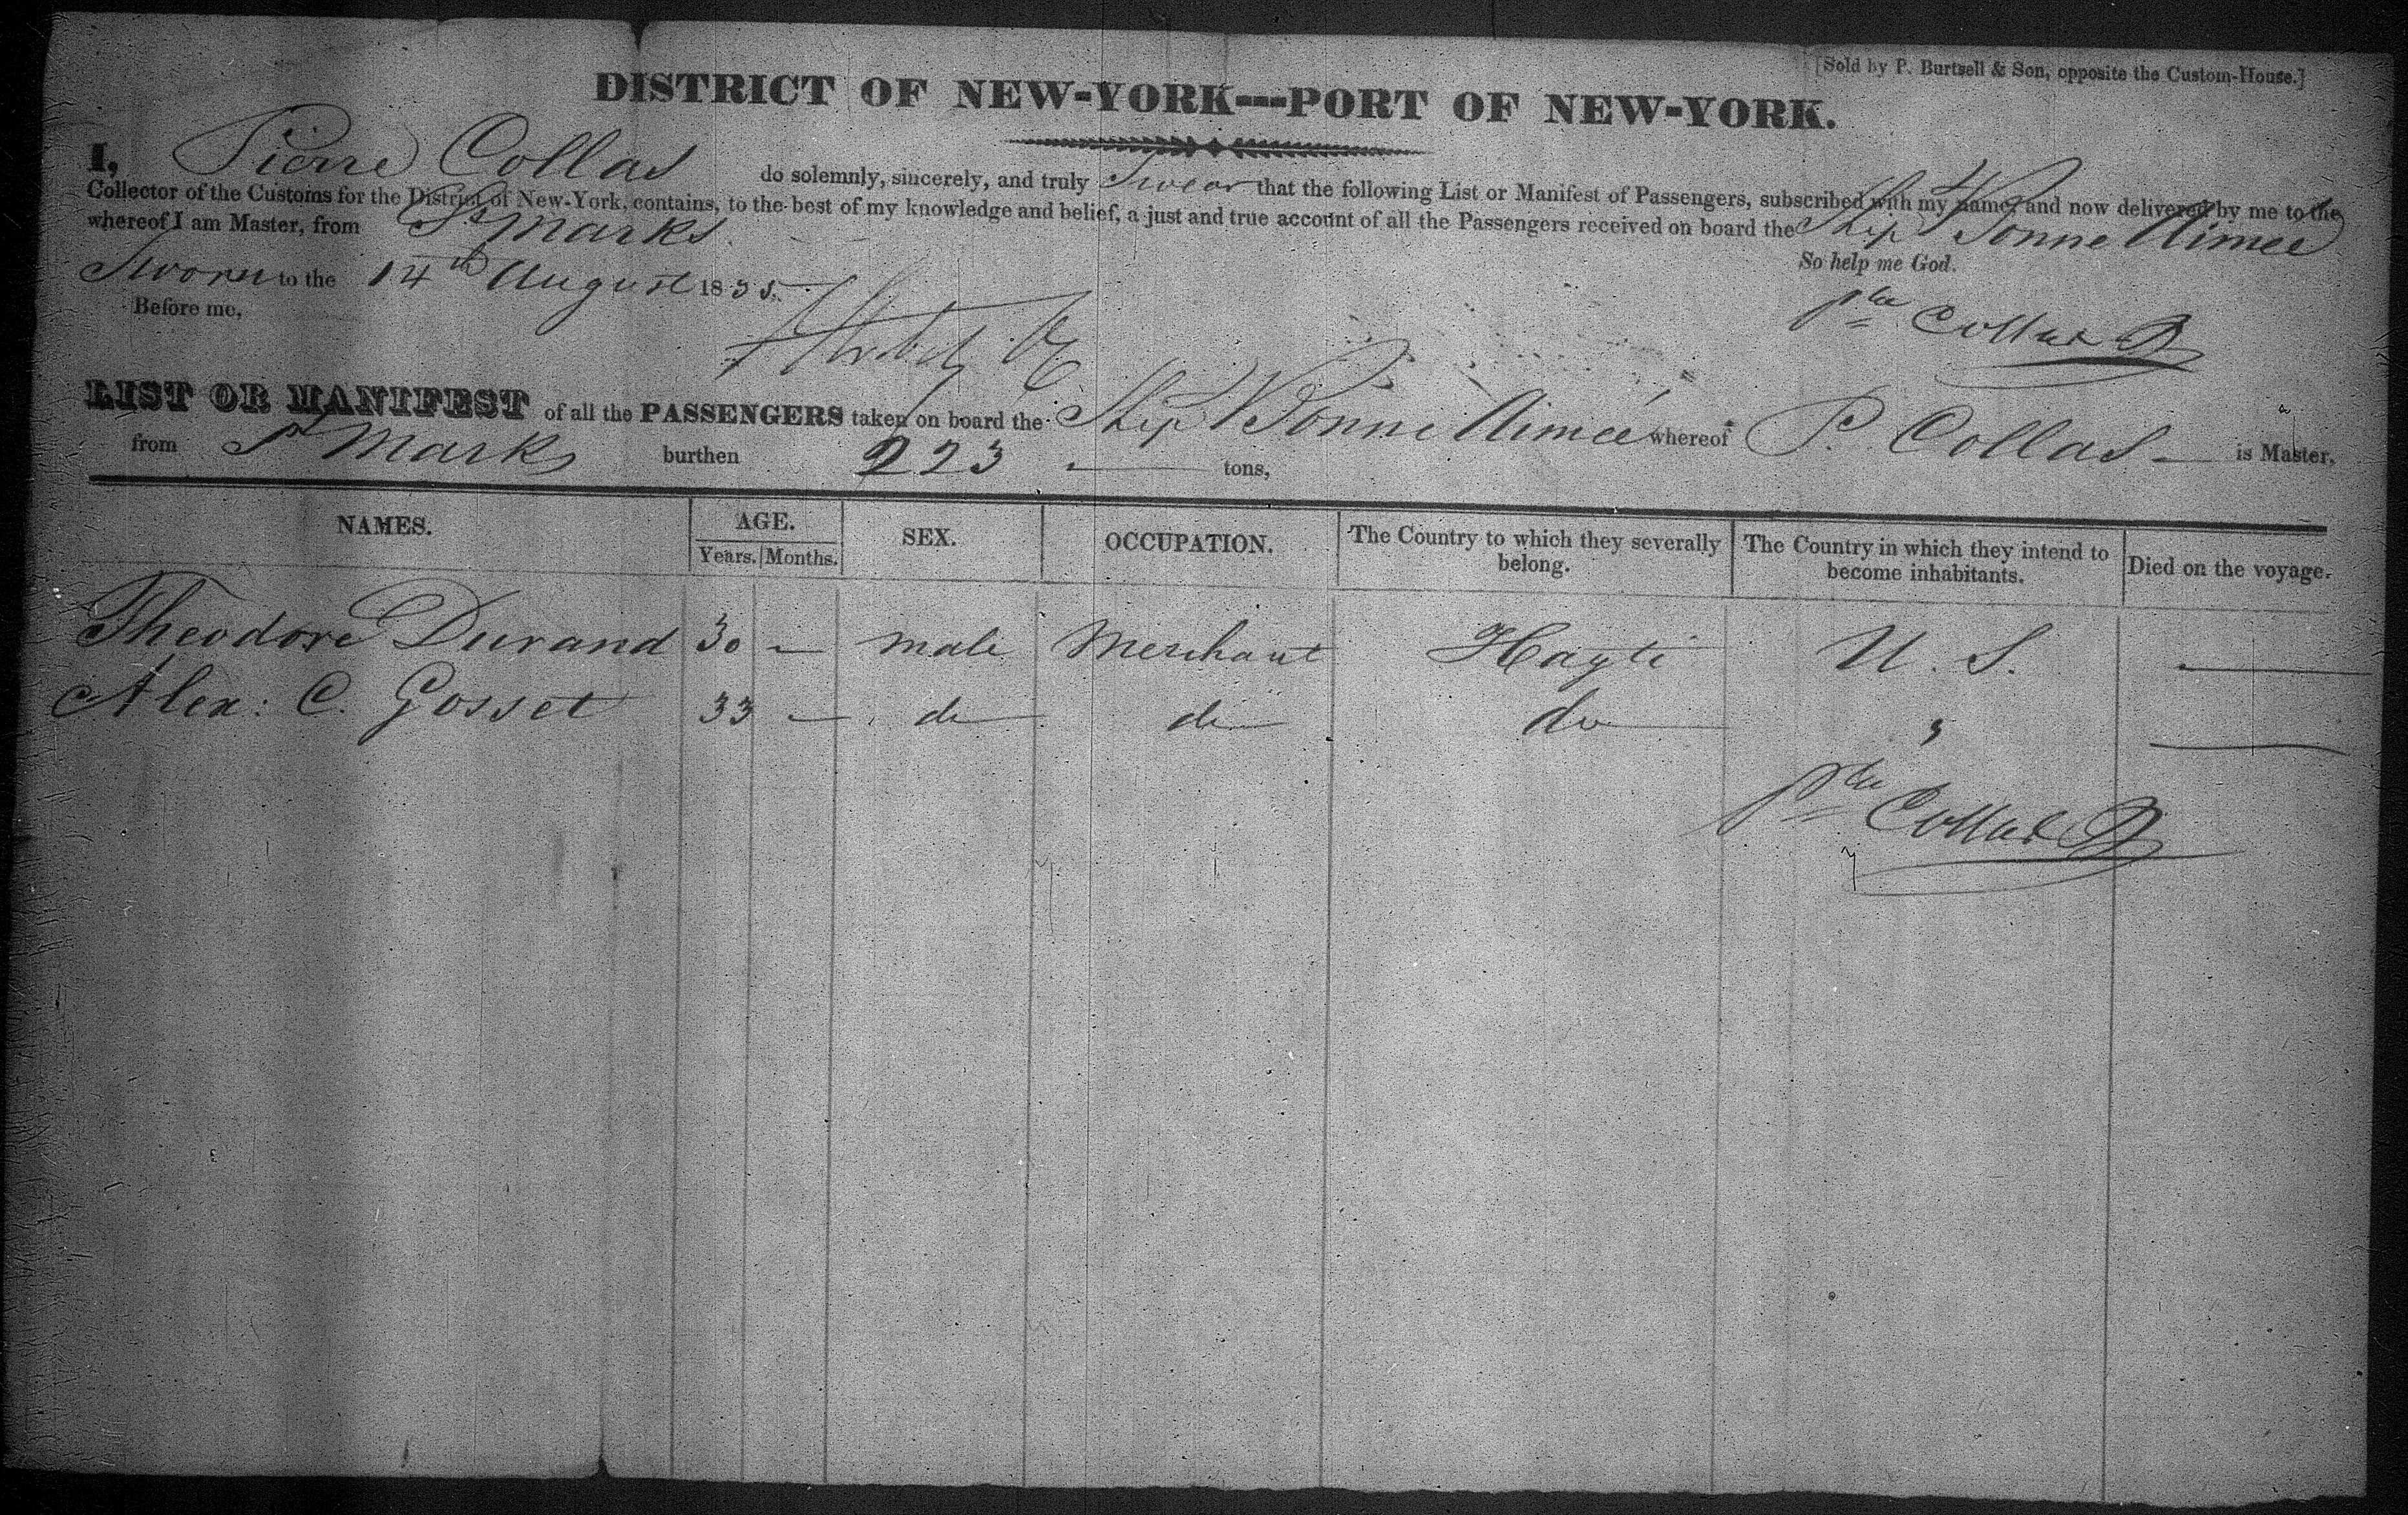 [Sold by P. Burtsell & Son, opposite the Custom-House.]
DISTRICT OF NEW-YORK---PORT OF NEW-YORK.
I, Pierre Collas do solemnly, sincerely, and truly Swear that the following List or Manifest of Passengers, subscribed with my name, and now delivered by me to the
Collector of the Customs for the District of New-York, contains, to the best of my knowledge and belief, a just and true account of all the Passengers received on board the Ship Bonne Aimee
whereof I am Master, from St Marks
So help me God.
Sworn to the 14th August 1835.
Before me,
Collas
LIST OR MANIFEST of all the PASSENGERS taken on board the Ship Bonne Aimee whereof P. Collas is Master,
from St Marks burthen 223 tons,
NAMES. AGE. SEX. OCCUPATION. The Country to which they severally belong. The Country in which they intend to become inhabitants. Died on the voyage.
Years. Months.
Theodore Durand 30 — male Merchant Hayti U. S. —
Alex: C. Gosset 33 — do do do " —
Collas